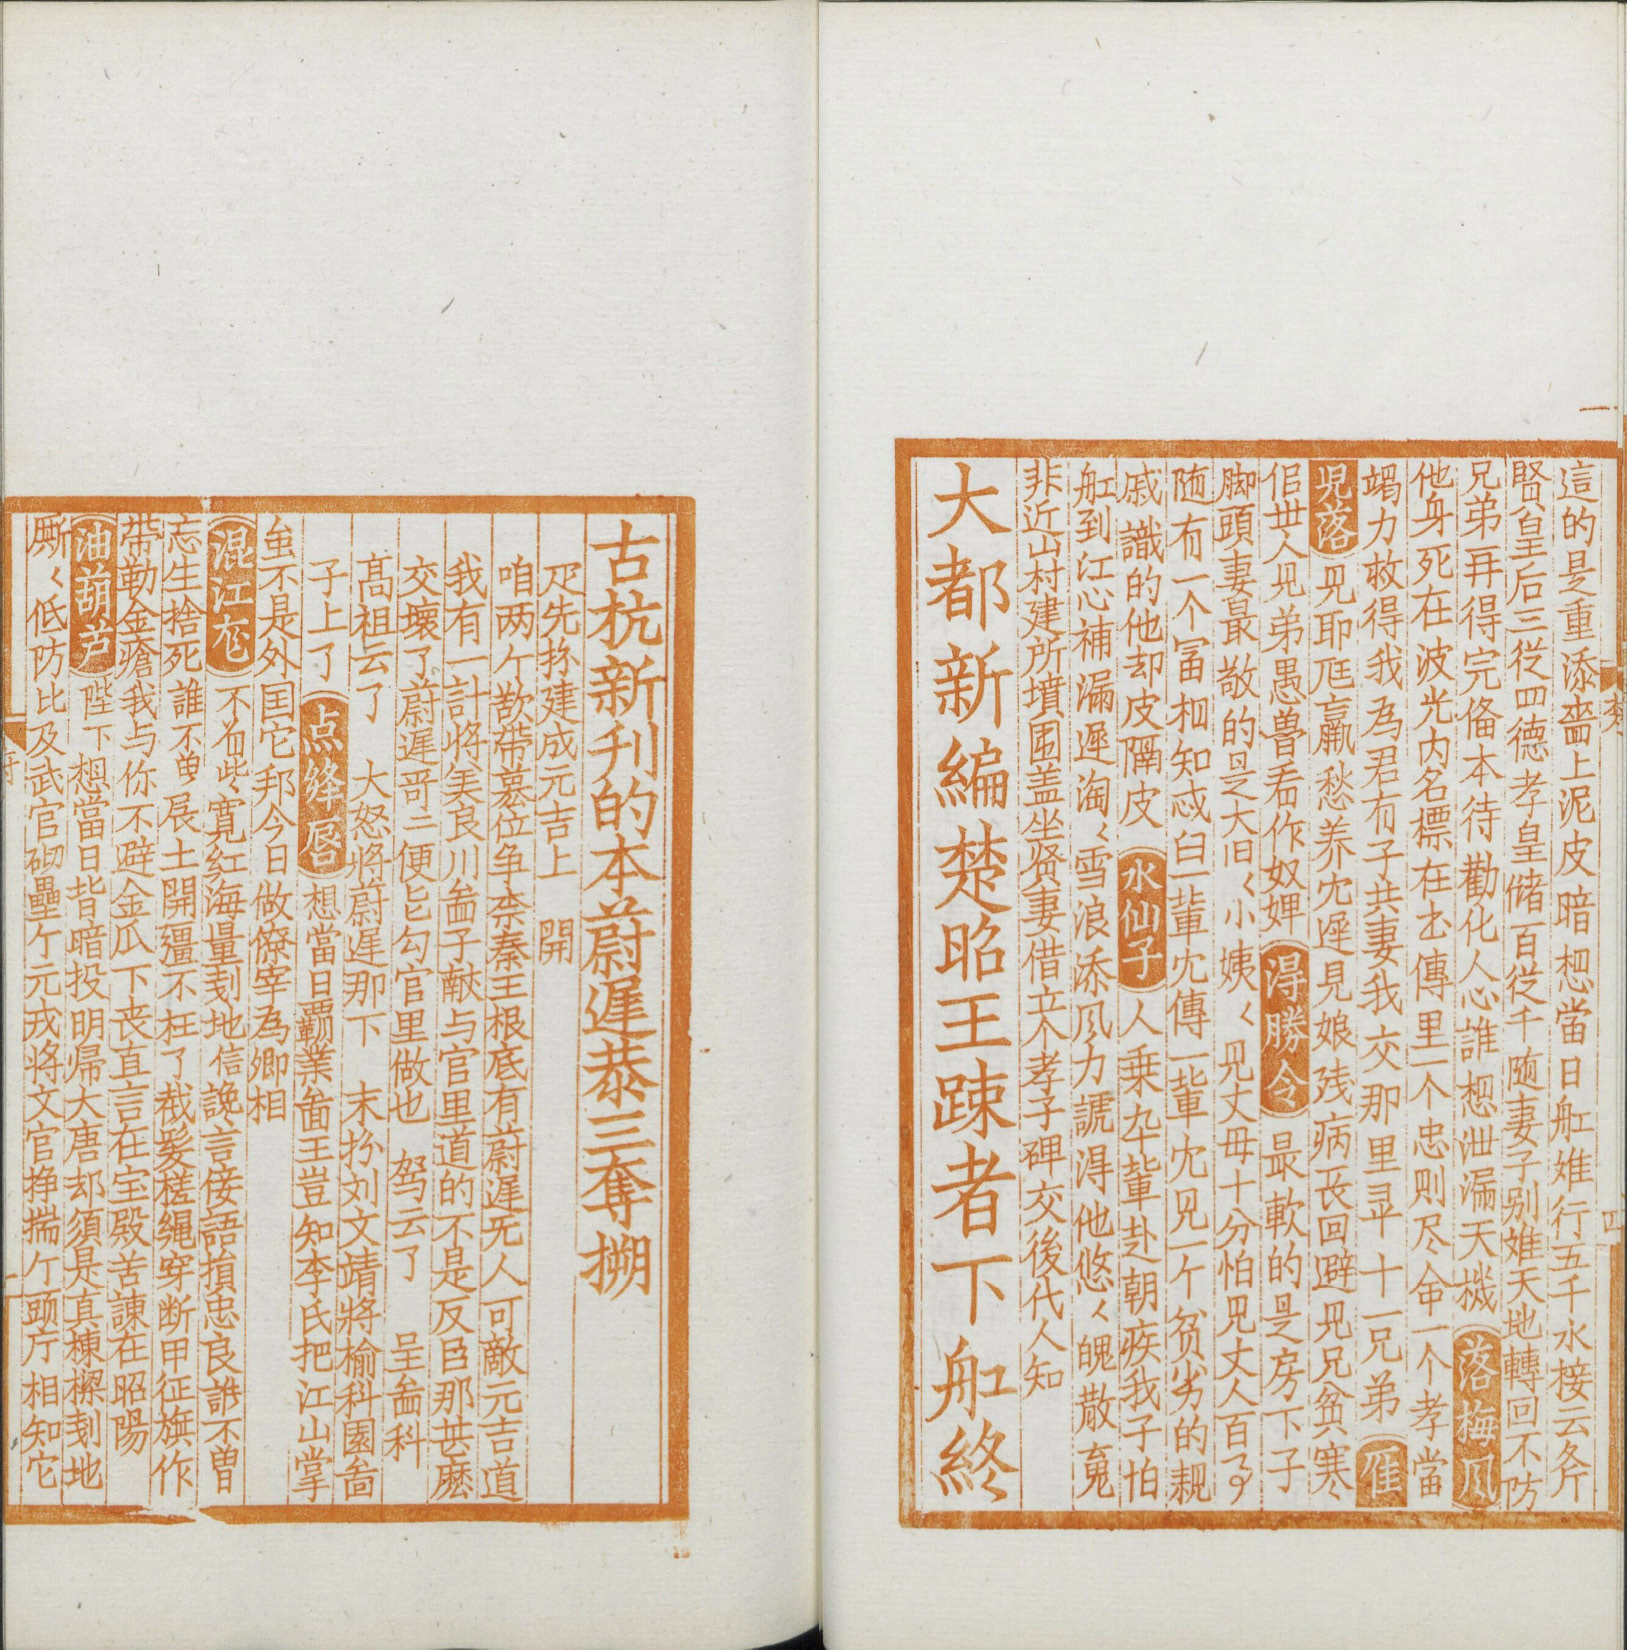 這的是重添臺上泥皮暗想當日舡難行五千水接云斧
賢皇后三從四德孝皇儲百從千隨妻子别難天地轉回不防
兄弟再得完俻本待勸化人心誰想泄漏天機 落梅風
他身死在波光内名標在古傳里一个忠則尽命一个孝當
竭力救得我為君有子共妻我交那里寻十一兄弟 雁
児落 兄耶尫羸愁养冘遅見娘残病在回避兄兄貧寒
倌丗人兄弟愚魯看作奴婢 淂勝令 最軟的是房下子
脚頭妻最敬的是大旧〱小姨〱見丈母十分怕見丈人百
随有一个冨相知忒白一輩冘傳一輩冘見一个贫劣的親
戚識的他却皮隔皮 水仙子 人乗卆輩赴朝疾我子怕
舡到江心補漏遲淘〱雪浪添風力諕淂他悠〱魄散䰟
非近山村建所墳園盖坐贤妻借立个孝子碑交後代人知
大都新編楚昭王踈者下舡終
古杭新刋的本蔚遲恭三奪搠
疋先扮建成元吉上 開
咱两个欲帶墓位争柰秦王根底有蔚遲无人可敵元吉道
我有一計将美良川啚子献与官里道的不是反臣那甚麽
交壞了蔚遲哥二便乞勾官里做也 驾云了 呈啚科
髙祖云了 大怒将蔚遲那下 末扮刘文靖將榆科園啚
子上了 点绛唇 想當日覇業啚王豈知李氏把江山掌
虽不是外国它邦今日做僚宰為卿相
混江龙 不若些寛红海量刬地信讒言侫語損忠良誰不曾
忘生捨死誰不曽展土開彊不枉了截髪槎縄穿断甲征旗作
带勒金瘡我与你不避金瓜下丧直言在宝殿苦諫在昭陽
油葫芦 陛下想當日皆暗投明帰大唐却須是真棟樑刬地
厮〱低防比及武官砌壘个元戎将文官挣揣个頭庁相知它